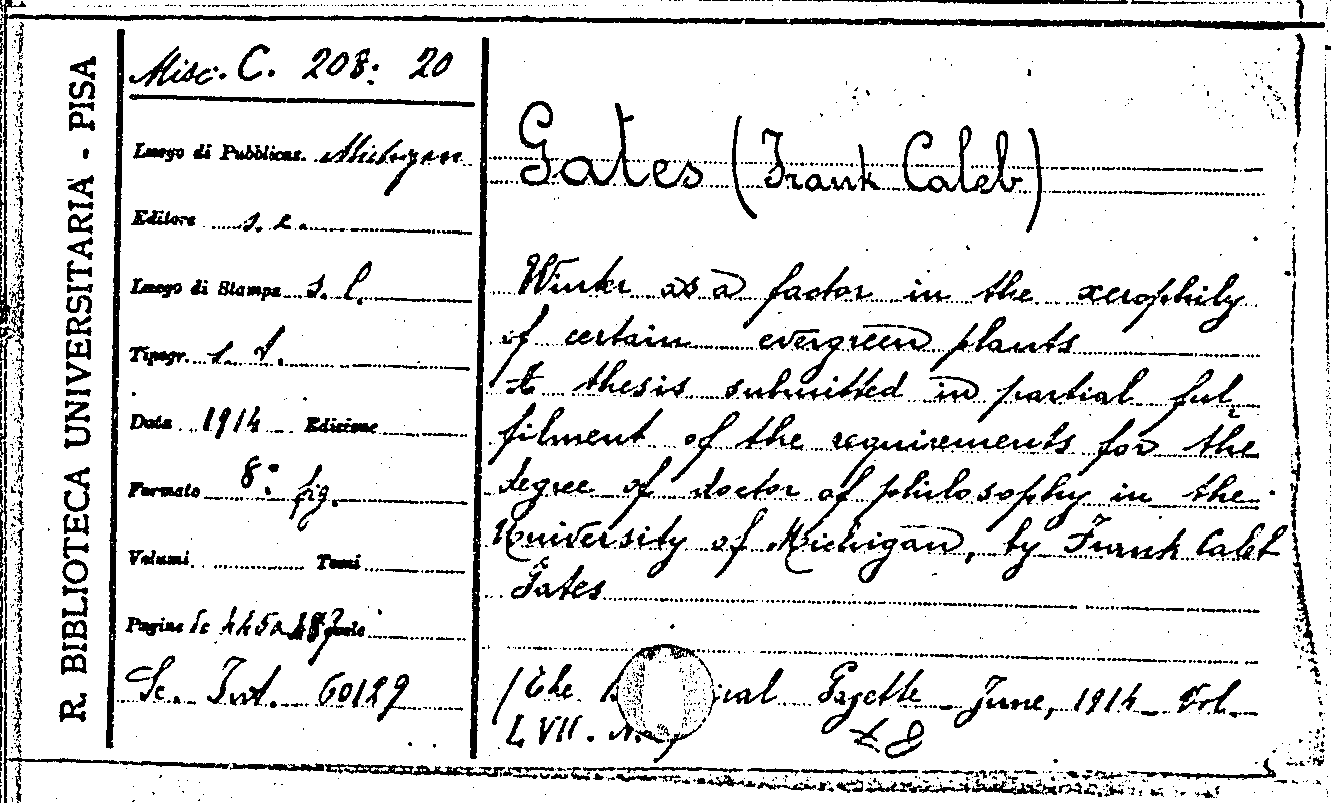 R. BIBLIOTECA UNIVERSITARIA - PISA
Misc. C. 208: 20
Luogo di Pubblicaz. Michigan
Editore s. e.
Luogo di Stampa s. l.
Tipogr. s. t.
Data 1914 Edizione
Formato 8: fig.
Volumi Tomi
Pagine da 445 a
Sc. Int. 60129
Gates (Frank Caleb)
Winter as a factor in the xerophily
of certain evergreen plants
A thesis submitted in partial ful-
filment of the requirements for the
degree of doctor of philosophy in the
University of Michigan, by Frank Caleb
Gates
(The ical Gazette June, 1914 Vol.
LVII.